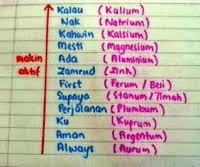 Kalau (Kalium)
Nak (Natrium)
Kahwin (Kalsium)
Mesti (Magnesium)
Ada (Aluminium)
Zamrud (Zink)
First (Ferum / Besi)
Supaya (Stanum / Timah)
Perjalanan (Plumbum)
Ku (Kuprum)
Aman (Argentum)
Always (Aurum)
makin
aktif